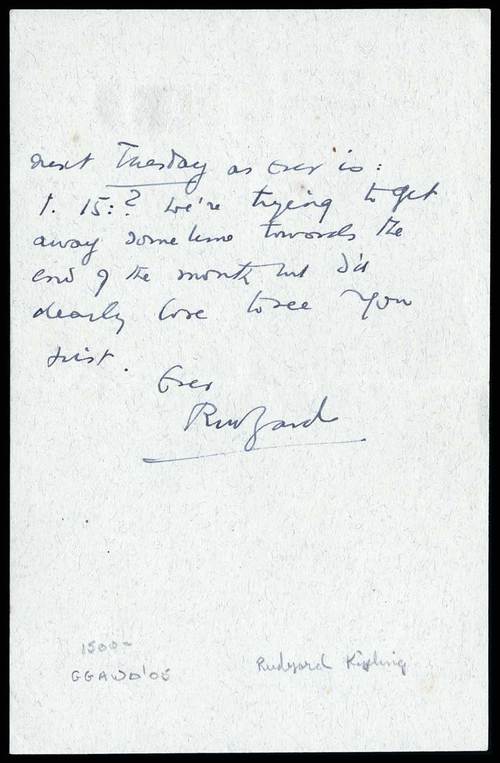 next Tuesday as ever is:
1. 15:? We're trying to get
away sometime towards the
end of the month but I'd
dearly love to see you
first.
Ever
Rudyard
1500-
GGAWD'OE
Rudyard Kipling